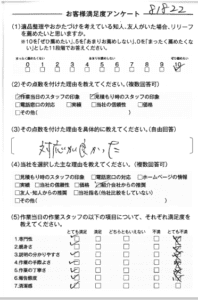 お客様満足度アンケート 81822
(1)遺品整理やおかたづけを考えている知人、友人がいた場合、リリーフ
を薦めたいと思いますか。
※10を「ぜひ薦めたい」、5を「あまりお薦めしない」、0を「まったく薦めたくな
い」とした11段階でお答えください。
0 1 2 3 4 5 6 7 8 9 10
(2)その点数を付けた理由を教えてください。(複数回答可)
作業当日のスタッフの印象 見積もり時のスタッフの印象
□電話窓口の対応 □実績 □当社の信頼性 □価格
□その他
(3)その点数を付けた理由を具体的に教えてください。(自由回答)
対応が良かった
(4)当社を選択した主な理由を教えてください。(複数回答可)
□見積もり時のスタッフの印象 □電話窓口の対応 □ホームページの情報
□実績 □当社の信頼性 □価格 紹介会社からの推薦
□友人・知人からの推薦 □当社指名(当社比較をしていない)
□その他
(5)作業当日の作業スタッフの以下の項目について、それぞれ満足度を
教えてください。
とても満足 満足 どちらともいえない 不満 とても不満
1.専門性
2.親身さ
3.説明の分かりやすさ
4.作業の手際よさ
5.作業の丁寧さ
6.報告頻度
7.清潔感